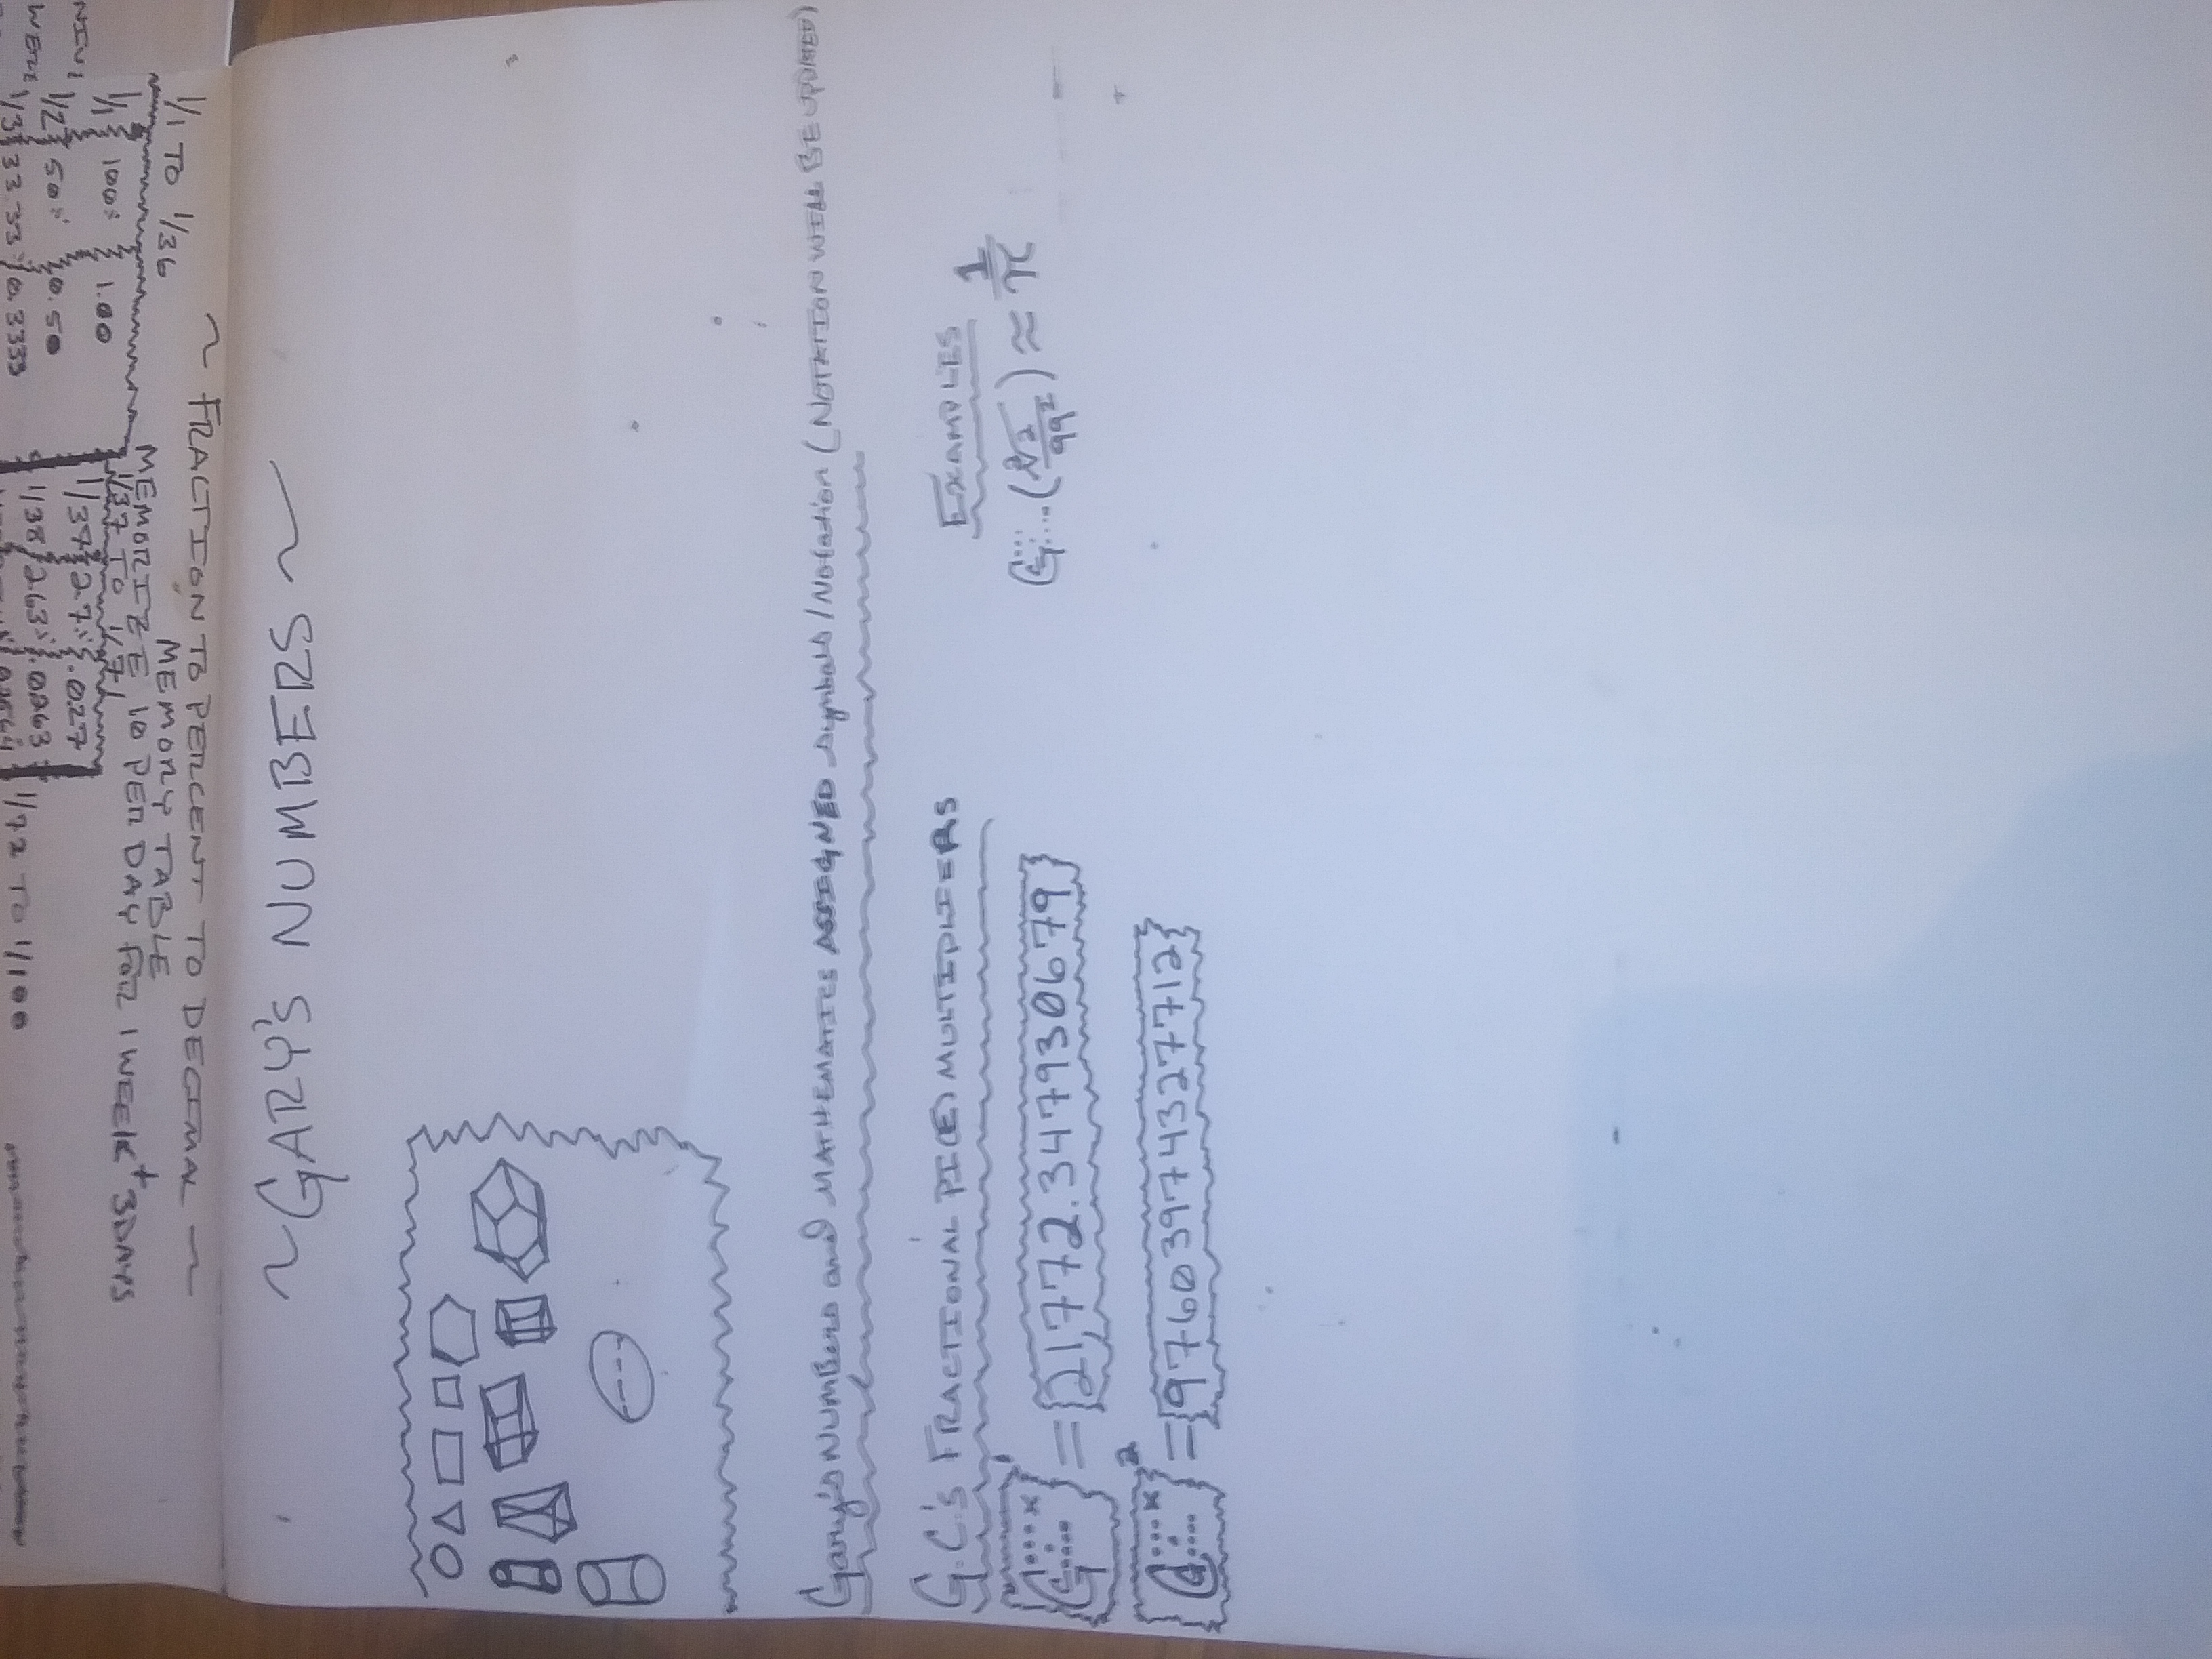 ~ FRACTION TO PERCENT TO DECIMAL ~
MEMORY TABLE
MEMORIZE 10 PER DAY FOR 1 WEEK + 3DAYS
1/1 TO 1/36
1/37 TO 1/71
1/72 TO 1/100
1/1 100% 1.00
1/2 50% 0.50
1/3 33.33 0.3333
1/37 2.7% .027
1/38 2.63% .0263
~GARY'S NUMBERS~
Gary's NUMBERS and MATHEMATICS ASSIGNED Symbols/Notation (NOTATION WILL BE UPDATED)
G.C.'s FRACTIONAL PI(E) MULTIPLIERS
G x 1 = 21,772.347930679
G x 2 = 976039743277712
EXAMPLES
G (√2/99²) ≈ 1/π